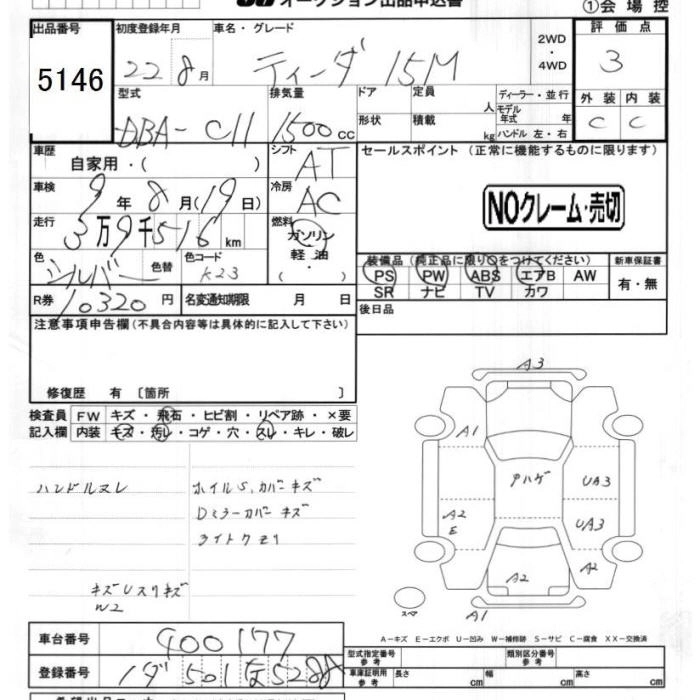 オークション出品申込書
①会場控
出品番号
5146
初度登録年月
22 8月
車名・グレード
ティーダ 15M
2WD
・
4WD
評価点
3
型式
DBA-C11
排気量
1500 CC
ドア
形状
定員
人
積載
kg
ディーラー・並行
モデル
年式 年
ハンドル 左・右
外装 内装
C C
車歴
自家用・( )
シフト
AT
セールスポイント (正常に機能するものに限ります)
車検
9年8月(19日)
冷房
AC
NOクレーム・売切
走行
3万9千516km
燃料
ガソリン
軽油
・( )
色
シルバー
色替
色コード
K23
装備品 (純正品に限り○をつけてください)
PS PW ABS エアB AW
SR ナビ TV カワ
新車保証書
有・無
R券
10320円
名変通知期限 月 日
後日品
注意事項申告欄(不具合内容等は具体的に記入して下さい)
修復歴 有 〔箇所 〕
検査員
記入欄
FW キズ・飛石・ヒビ割・リペア跡・×要
内装 キズ・汚レ・コゲ・穴・スレ・キレ・破レ
ハンドルスレ
ホイルS,カバーキズ
Dミラーカバーキズ
ライトクモリ
W2
A3
A1
Pハゲ
UA3
A2
E
UA3
A2
A2
A1
スペア
A-キズ E-エクボ U-凹み W-補修跡 S-サビ C-腐食 XX-交換済
車台番号
400177
登録番号
501 5288
型式指定番号
参考
類別区分番号
参考
車庫証明用
参考
長さ cm
幅 cm
高さ cm